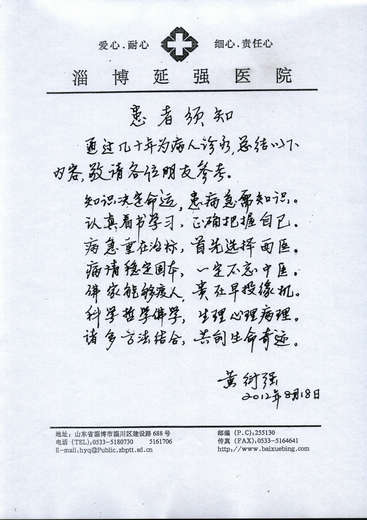 爱心.耐心 细心.责任心
淄博延强医院
患者须知
通过几十年为病人诊治,总结以下
内容,敬请各位朋友参考。
知识决定命运,患病急需知识。
认真看书学习,正确把握自己。
病急重在治标,首先选择西医。
病情稳定固本,一定不忘中医。
佛家能够度人,贵在早投缘机。
科学哲学佛学,生理心理病理。
诸多方法结合,共创生命奇迹。
黄衍强
2012年8月18日
地址:山东省淄博市淄川区建设路688号 邮编 (P.C):255130
电话 (TEL):0533-5180730 5161706 传真 (FAX):0533-5164641
E-mail:hyq@Public.zbptt.sd.cn http://www.baixuebing.com